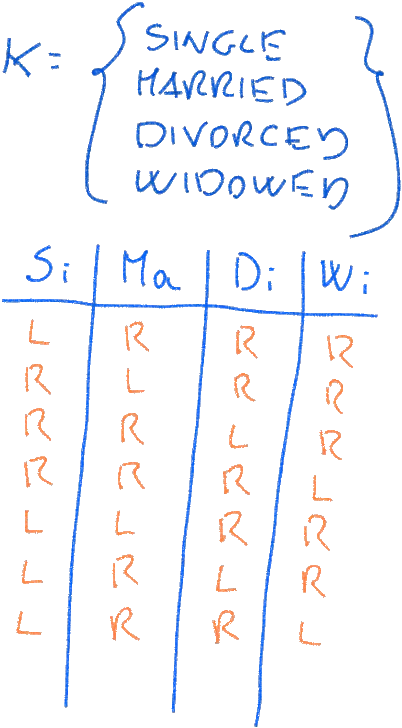 K = { SINGLE
MARRIED
DIVORCED
WIDOWED }
Si | Ma | Di | Wi
L | R | R | R
R | L | R | R
R | R | L | R
R | R | R | L
L | L | R | R
L | R | L | R
L | R | R | L